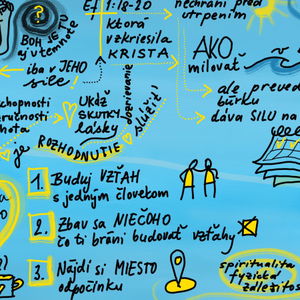 ?
Ef 1:18-20
ktorá
vzkriesila
KRISTA
nechráni pred
utrpením
BOH JE TU
aj v temnote
AKO
milovať
iba v JEHO
sile!
ale prevedie
búrku
dáva SILU na
schopnosti
zručnosti
UKÁŽ
SKUTKY
lásky
dozrievanie
slúžiť!
je ROZHODNUTIE
1. Buduj VZŤAH
s jedným človekom
2. Zbav sa NIEČOHO
čo ti bráni budovať vzťahy
3. Nájdi si MIESTO
odpočinku
spiritualita
fyzická
záležitosť